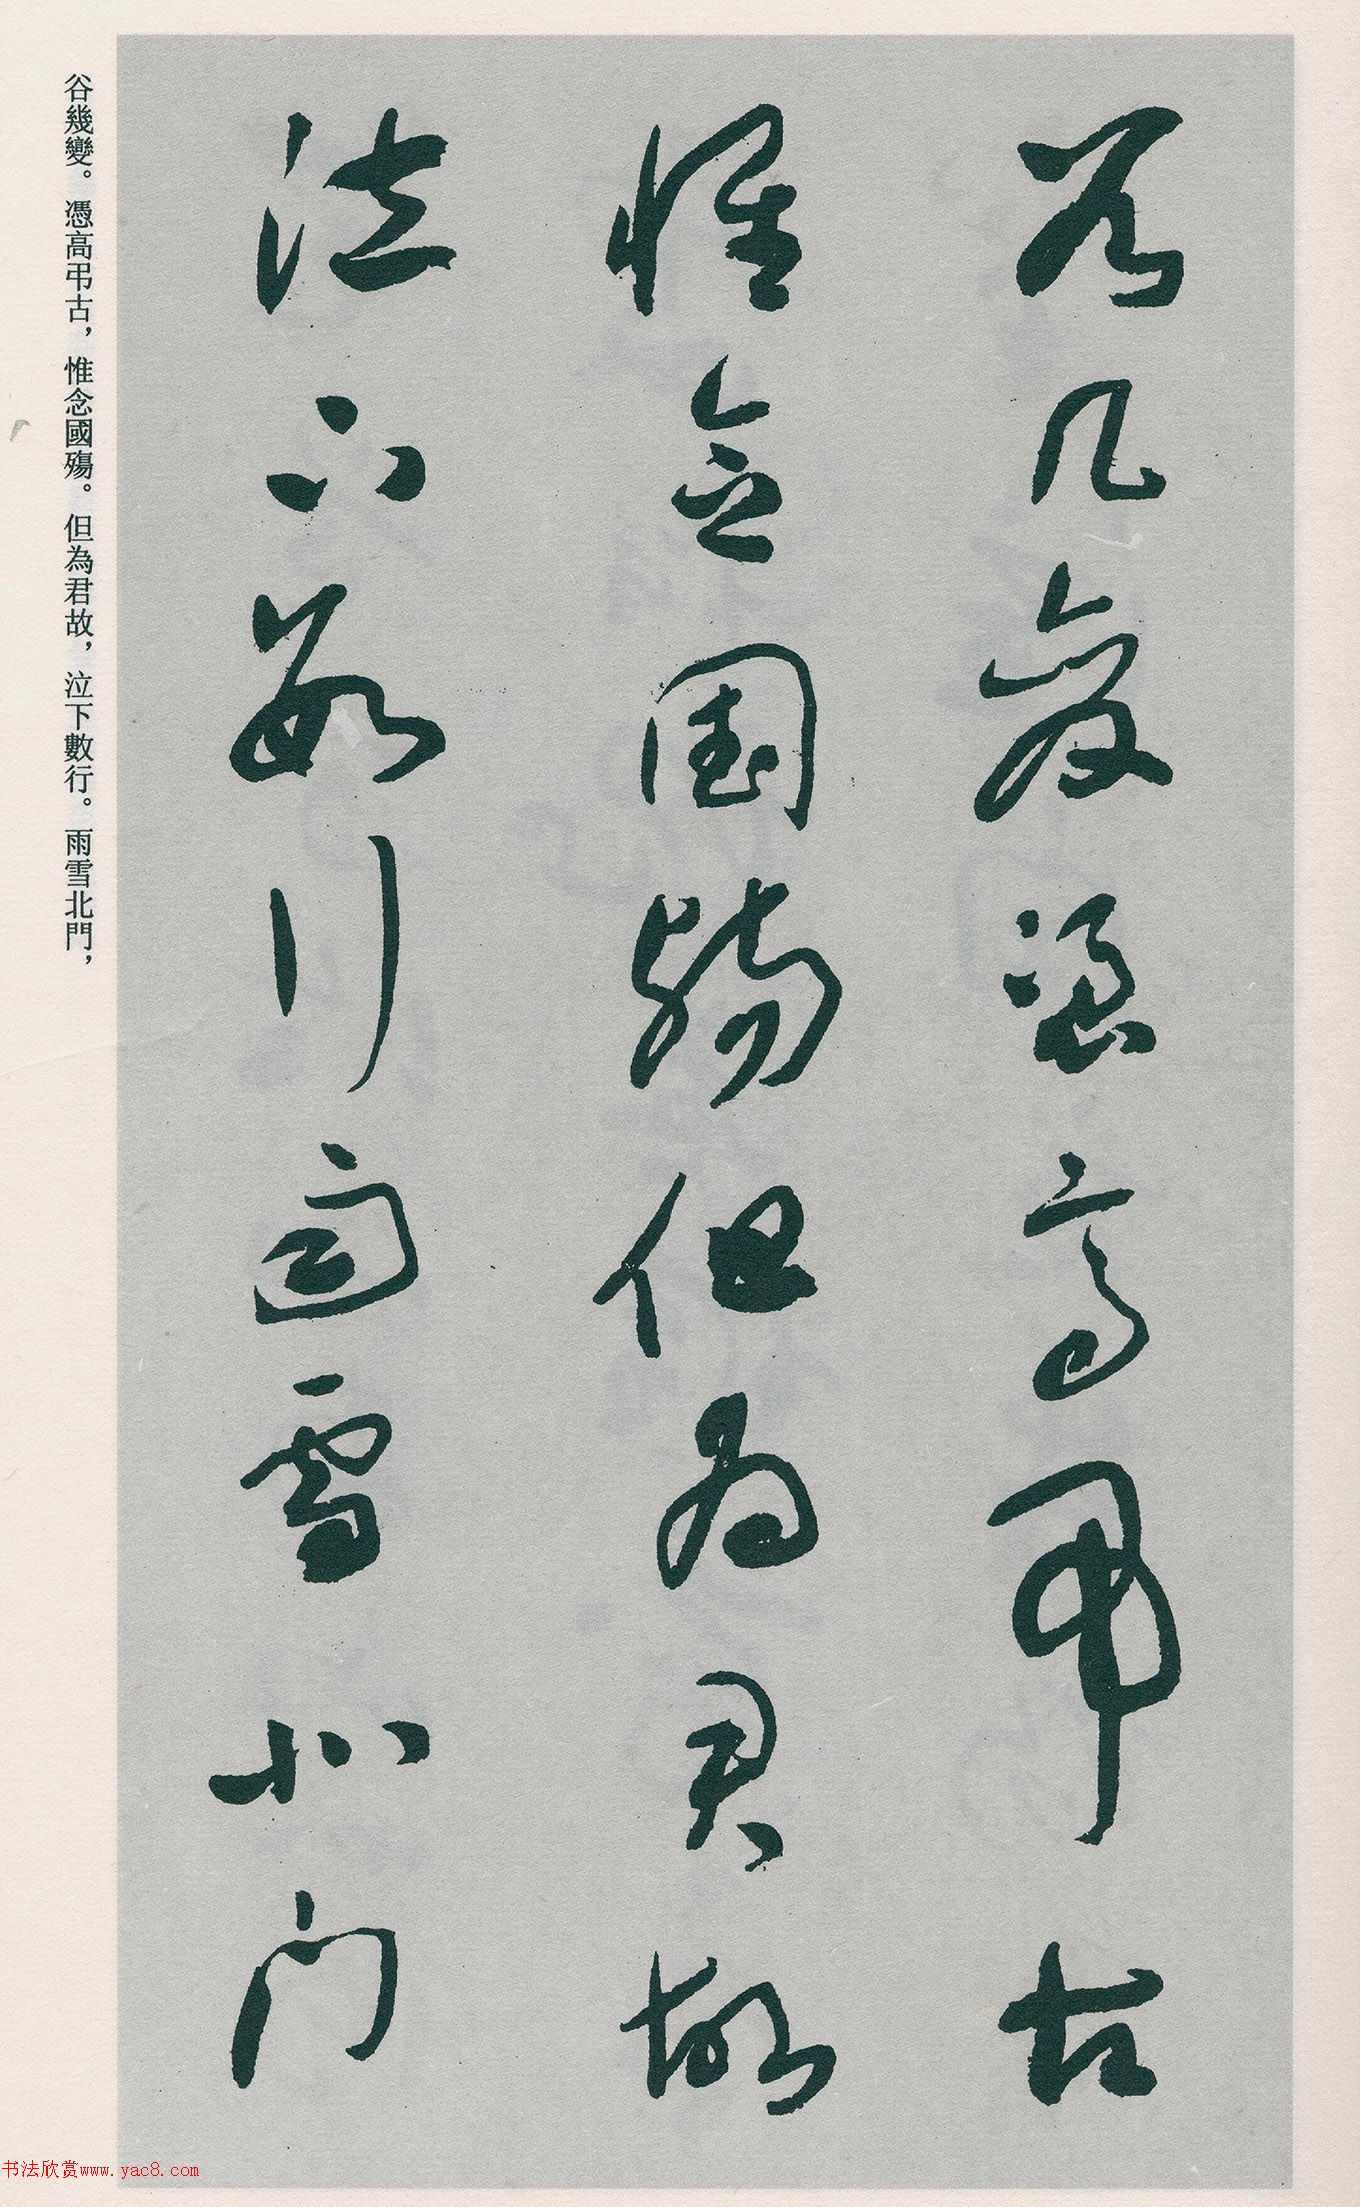 谷幾變憑高弔古
惟念國殤但為君故
泣下數行雨雪北門
谷幾變。憑高弔古，惟念國殤。但為君故，泣下數行。雨雪北門，
书法欣赏www.yac8.com